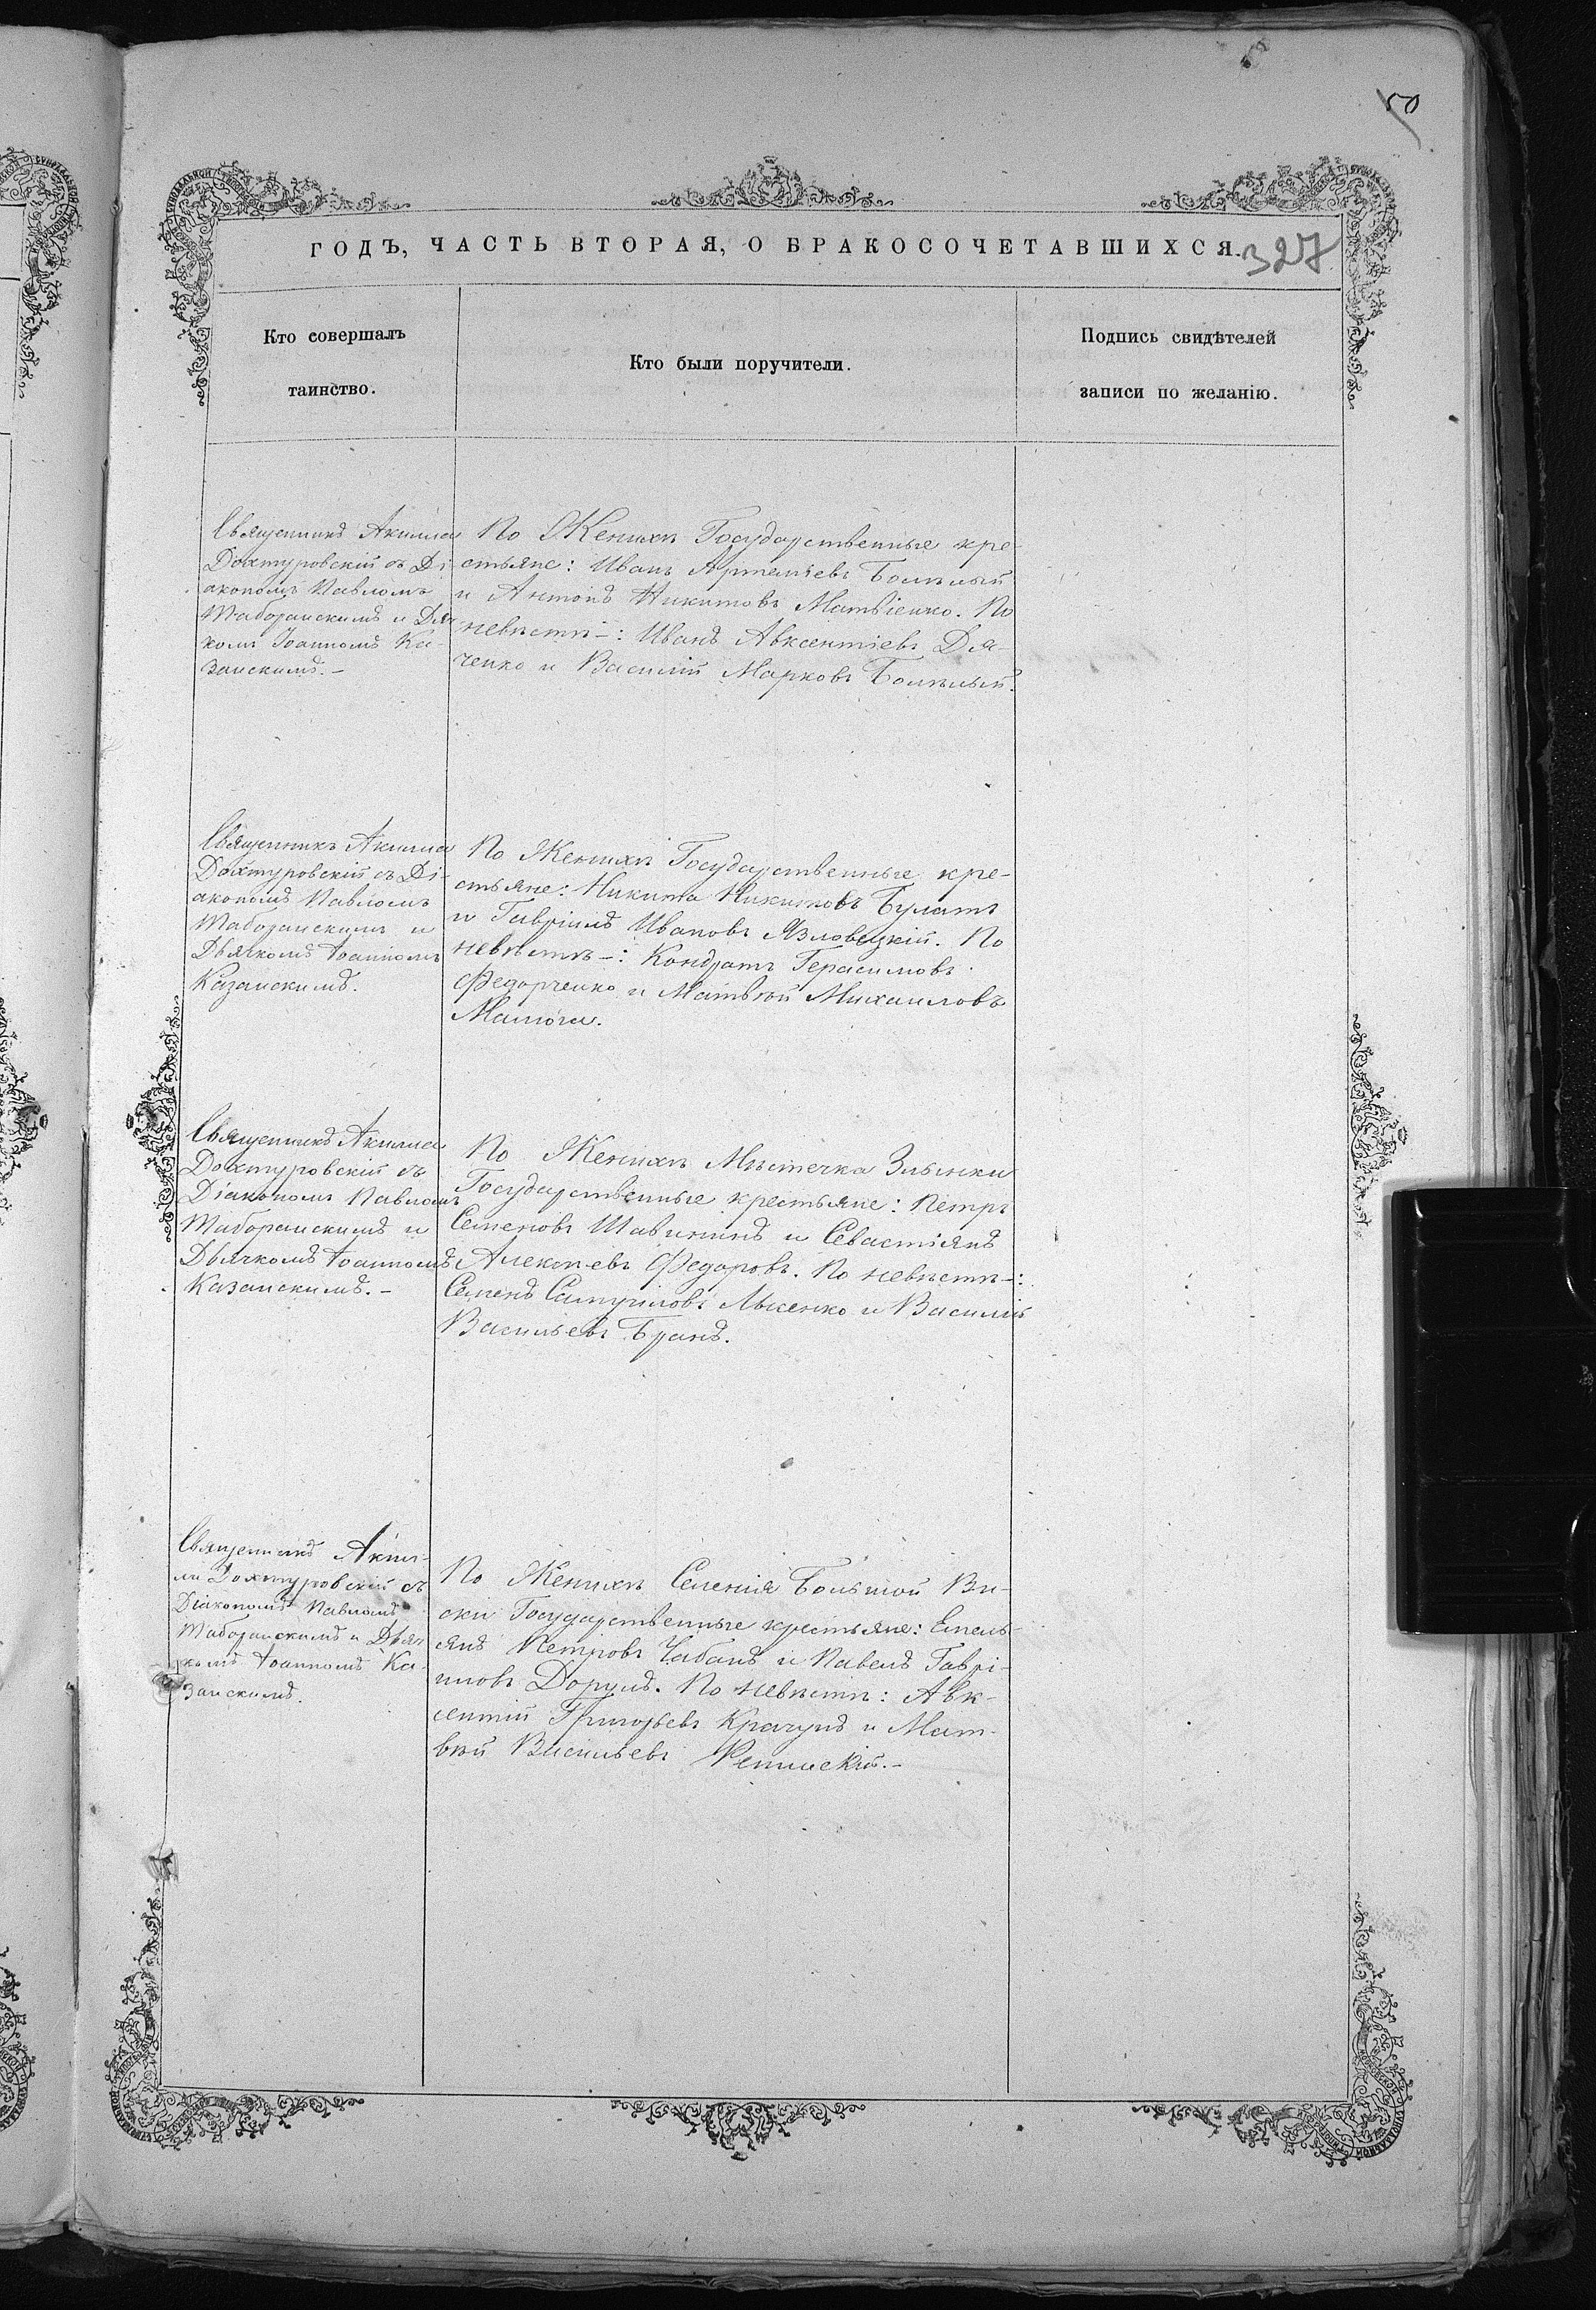 50
ГОДЪ, ЧАСТЬ ВТОРАЯ, О БРАКОСОЧЕТАВШИХСЯ.
327
Кто совершалъ
таинство.
Кто были поручители.
Подпись свидѣтелей
записи по желанію.
Священникъ Акила
Дохтуровскій съ Ді
акономъ Павломъ
Таборанскимъ и Дьяч
комъ Іоанномъ Ка-
занскимъ.-
По Женихѣ Государственные кре-
стьяне: Иванъ Артемьевъ
и Антонъ Никитовъ Матвіенко. По
невѣстѣ-: Иванъ Авксентіевъ Дя-
ченко и Василій Марковъ
Священникъ Акила
Дохтуровскій съ Ді-
акономъ Павломъ
Таборанскимъ и
Дьячкомъ Іоанномъ
Казанскимъ.
По Женихѣ Государственные кре-
стьяне: Никита Никитовъ Булатъ
и Гавріилъ Ивановъ Язловецкій. По
невѣстѣ-: Кондратъ Герасимовъ
Федорченко и Матвѣй Михаиловъ
Малюга.
Священникъ Акила
Дохтуровскій съ
Діакономъ Павломъ
Таборанскимъ и
Дьячкомъ Іоанномъ
Казанскимъ.-
По Женихѣ Мѣстечка Злынки
Государственные крестьяне: Петръ
Семеновъ Шавининъ и Севастіянъ
Алексѣевъ Федоровъ. По невѣстѣ-:
Семенъ Самуиловъ Лысенко и Василій
Васильевъ Бранъ.
Священникъ Аки-
ла Дохтуровскій съ
Діакономъ Павломъ
Таборанскимъ и Дьяч
комъ Іоанномъ Ка-
занскимъ.
По Женихѣ Селенія Большой Ви-
ски Государственные крестьяне: Емель-
янъ Петровъ Чабанъ и Павелъ Гаврі-
иловъ Дорулъ. По невѣстѣ: Авк-
сентій Григорьевъ Крачунъ и Мат-
вѣй Васильевъ